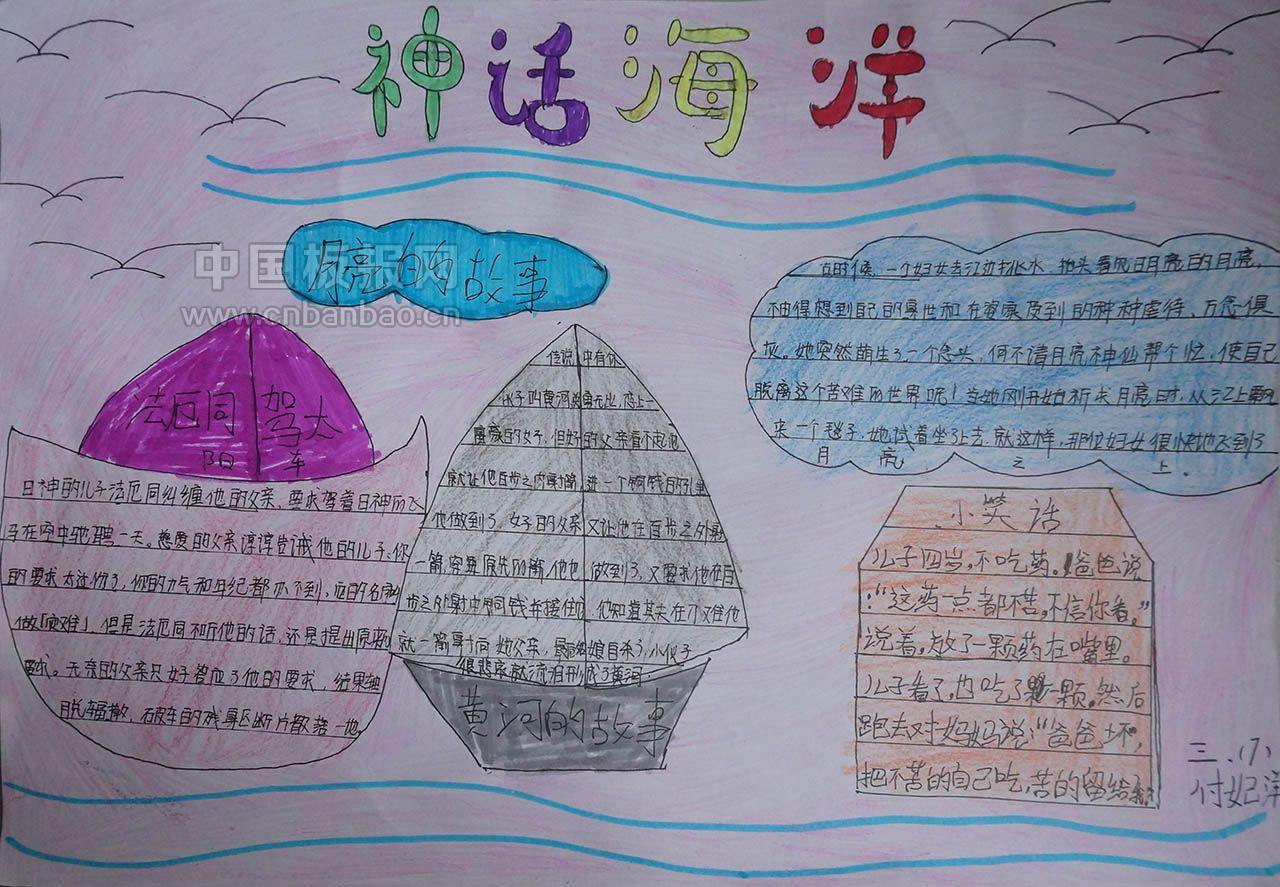 神话海洋
中国板报网
www.cnbanbao.cn
月亮的故事
古时候，一个妇女去江边挑水，抬头看见月亮的月亮，
不由得想到自己的身世和在婆家及到的种种虐待、万念俱
灰。她突然萌生了一个念头，何不请月亮神仙帮个忙，使自己
脱离这个苦难的世界呢！当她刚开始祈求月亮时，从江上飘
来一个毯子，她试着坐了上去，就这样，那位妇女很快地飞到了
月亮之上。
法厄同驾太
阳车
日神的儿子法厄同纠缠他的父亲，要求驾着日神的飞
马在空中驰骋一天。慈爱的父亲谆谆告诫他的儿子，你
的要求太过份了，你的力气和年纪都办不到，它的名字叫
做「灾难」，但是法厄同不听他的话，还是提出原来的
要求。无奈的父亲只好答应了他的要求，结果轴
脱辐散，破车的残身区断片散落一地。
传说中有伙
伙子叫黄河勇无比，恋上一
富家的女子，但女的父亲看不起他
就让他百步之内射箭，进一个铜钱的孔里
他做到了，女子的父亲又让他在百步之外射
一箭，穿原先的箭，他也做到了，又要求他在百
步之外射中铜钱并接住，
就一箭射向她父亲，最后姑娘自杀了，小伙子
很悲哀就流泪形成了黄河。
黄河的故事
小笑话
儿子四岁，不吃药。爸爸说
：“这药一点都不苦，不信你看。”
说着，放了一颗药在嘴里。
儿子看了，也吃了一颗。然后
跑去对妈妈说：“爸爸坏，
把不苦的自己吃，苦的留给我
三．（7）
付妃洋